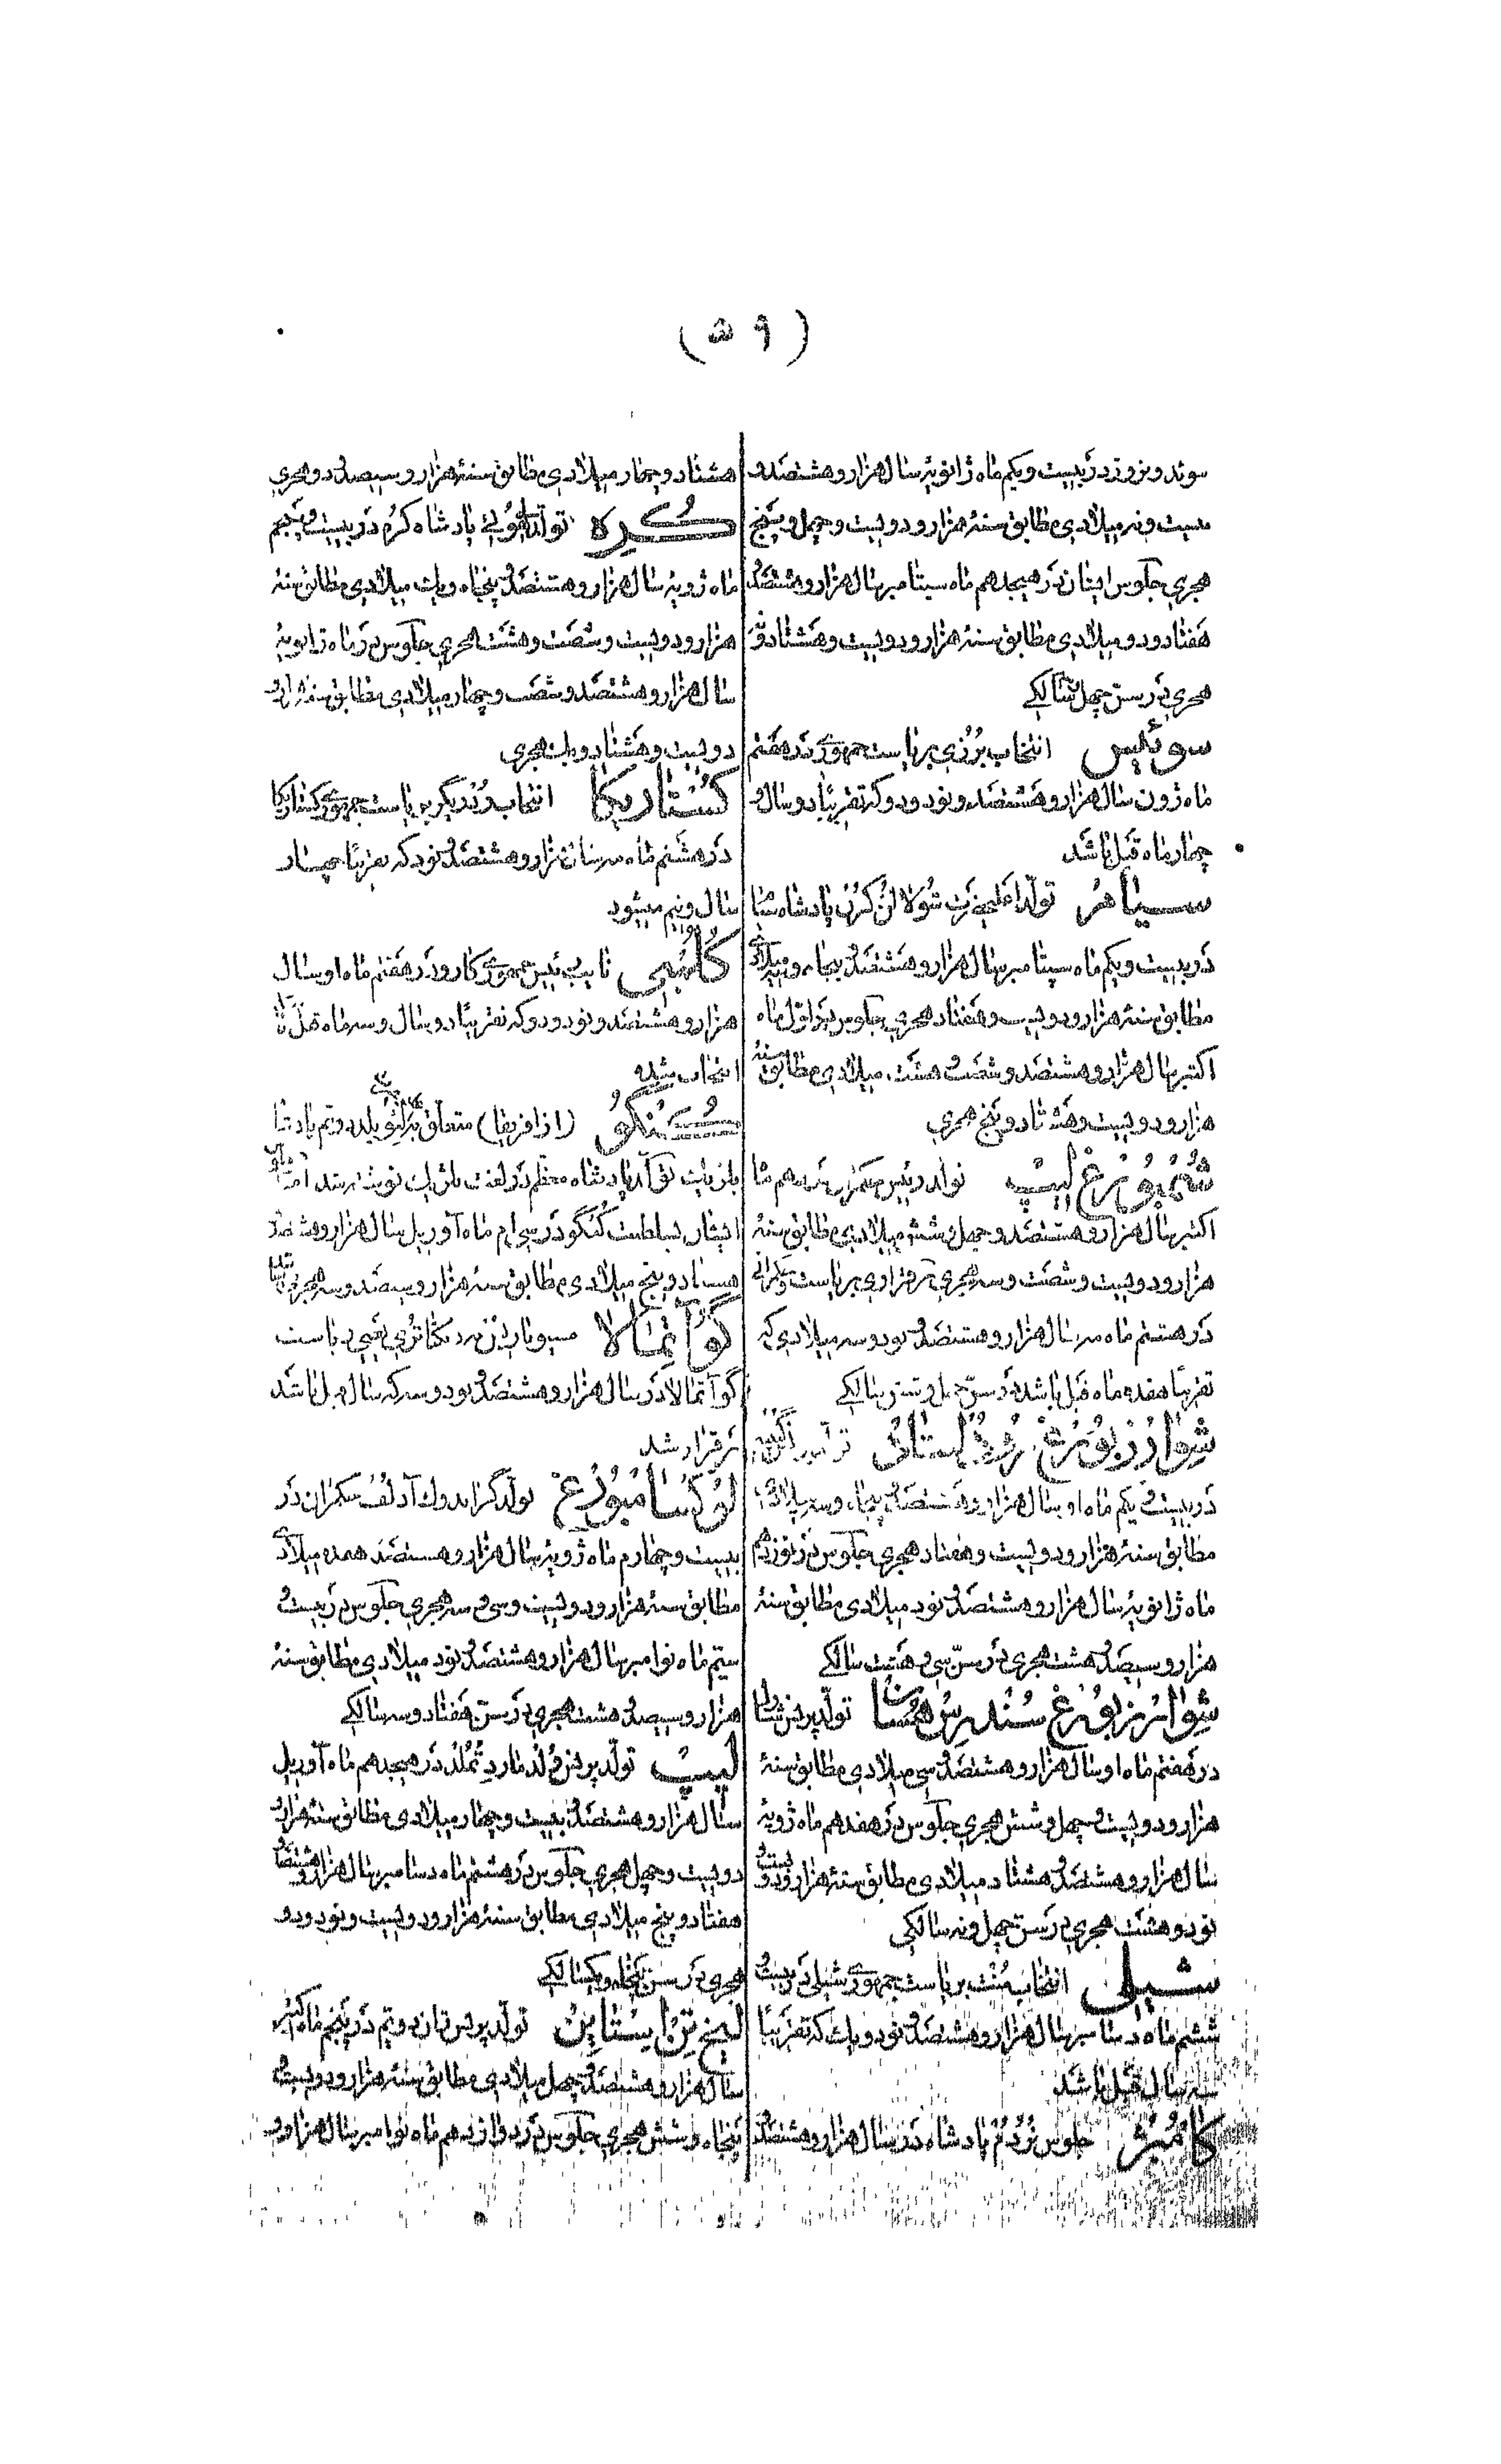 (۵۹)
سوئد و نروژ در بیست و یکم ماه ژانویه سال هزار و هشتصد و
بیست و نه میلادی مطابق سنه هزار و دویست و چهل و پنج
هجری جلوس ایشان در هیجدهم ماه سپتامبر سال هزار و هشتصد و
هفتاد و دو میلادی مطابق سنه هزار و دویست و هشتاد و نه
هجری در سن چهل سالگی
سوئیس انتخاب بریاست جمهوری در هفتم
ماه ژون سال هزار و هشتصد و نود و دو که تقریباً دو سال و
چهار ماه قبل باشد
سیام تولد اعلیحضرت شولالن کرن پادشاه سیام
در بیست و یکم ماه سپتامبر سال هزار و هشتصد و پنجاه و میلادی
مطابق سنه هزار و دویست و هفتاد هجری جلوس در اول ماه
اکتبر سال هزار و هشتصد و شصت و هشت میلادی مطابق سنه
هزار و دویست و هشتاد و پنج هجری
شمبورغ لیپ تولد پرنس در هم ماه
اکتبر سال هزار و هشتصد و چهل و شش میلادی مطابق سنه
هزار و دویست و شصت و سه هجری برقراری بریاست و حکمرانی
در هشتم ماه مه سال هزار و هشتصد و نود و سه میلادی که
تقریباً هفده ماه قبل باشد در سن چهل و شش سالگی
شوارزبورغ رودلستات تولد پرنس
در بیست و یکم ماه اوت سال هزار و هشتصد و پنجاه و سه میلادی
مطابق سنه هزار و دویست و هفتاد هجری جلوس در نوزدهم
ماه ژانویه سال هزار و هشتصد و نود میلادی مطابق سنه
هزار و سیصد و هشت هجری در سن سی و هفت سالگی
شوارزبورغ سندرسهوسان تولد پرنس شارل
در هفتم ماه اوت سال هزار و هشتصد و سی میلادی مطابق سنه
هزار و دویست و چهل و شش هجری جلوس در هفدهم ماه ژویه
سال هزار و هشتصد و هشتاد میلادی مطابق سنه هزار و دویست و
نود و هشت هجری در سن چهل و نه سالگی
شیلی انتخاب منت بریاست جمهوری شیلی در بیست و
ششم ماه دسامبر سال هزار و هشتصد و نود و یک که تقریباً
سه سال قبل باشد
کامبژ جلوس نردم پادشاه در سال هزار و هشتصد و
هشتاد و چهار میلادی مطابق سنه هزار و سیصد و دو هجری
کره تولد لی هوئی پادشاه کره در بیست و پنجم
ماه ژویه سال هزار و هشتصد و پنجاه و یک میلادی مطابق سنه
هزار و دویست و شصت و هشت هجری جلوس در ماه ژانویه
سال هزار و هشتصد و شصت و چهار میلادی مطابق سنه هزار و
دویست و هشتاد و یک هجری
کستاریکا انتخاب ردریگز بریاست جمهوری کستاریکا
در هشتم ماه مه سال هزار و هشتصد و نود که تقریباً چهار
سال و نیم میشود
کلمبی نایب رئیس جمهوری کارو در هفتم ماه اوت سال
هزار و هشتصد و نود و دو که تقریباً دو سال و سه ماه قبل باشد
انتخاب شده
کنگو (از افریقا) متعلق به لئوپلد دویم پادشاه
بلژیک تولد پادشاه معظم در لغت بلژیک نوشته شد اما جلوس
ایشان بسلطنت کنگو در سی ام ماه آوریل سال هزار و هشتصد و
هشتاد و پنج میلادی مطابق سنه هزار و سیصد و سه هجری
گوآتمالا مسیو بریاست
گوآتمالا در سال هزار و هشتصد و نود و سه که سال قبل باشد
برقرار شد
لوکسامبورغ تولد گراندوک آدلف حکمران در
بیست و چهارم ماه ژویه سال هزار و هشتصد و هفده میلادی
مطابق سنه هزار و دویست و سی و سه هجری جلوس در بیست و
سیم ماه نوامبر سال هزار و هشتصد و نود میلادی مطابق سنه
هزار و سیصد و هشت هجری در سن هفتاد و سه سالگی
لیپ تولد پرنس ولدمار دتملد در هیجدهم ماه آوریل
سال هزار و هشتصد و بیست و چهار میلادی مطابق سنه هزار و
دویست و چهل هجری جلوس در هشتم ماه دسامبر سال هزار و هشتصد و
هفتاد و پنج میلادی مطابق سنه هزار و دویست و نود و دو
هجری در سن پنجاه و یکسالگی
لیختن استاین تولد پرنس ژان دویم در پنجم ماه اکتبر
سال هزار و هشتصد و چهل میلادی مطابق سنه هزار و دویست و
پنجاه و شش هجری جلوس در دوازدهم ماه نوامبر سال هزار و